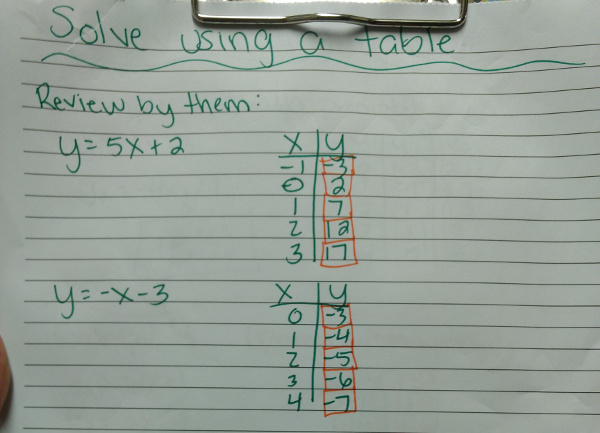 Solve using a table
Review by them:
y=5x+2
x y
-1 -3
0 2
1 7
2 12
3 17
y=-x-3
x y
0 -3
1 -4
2 -5
3 -6
4 -7